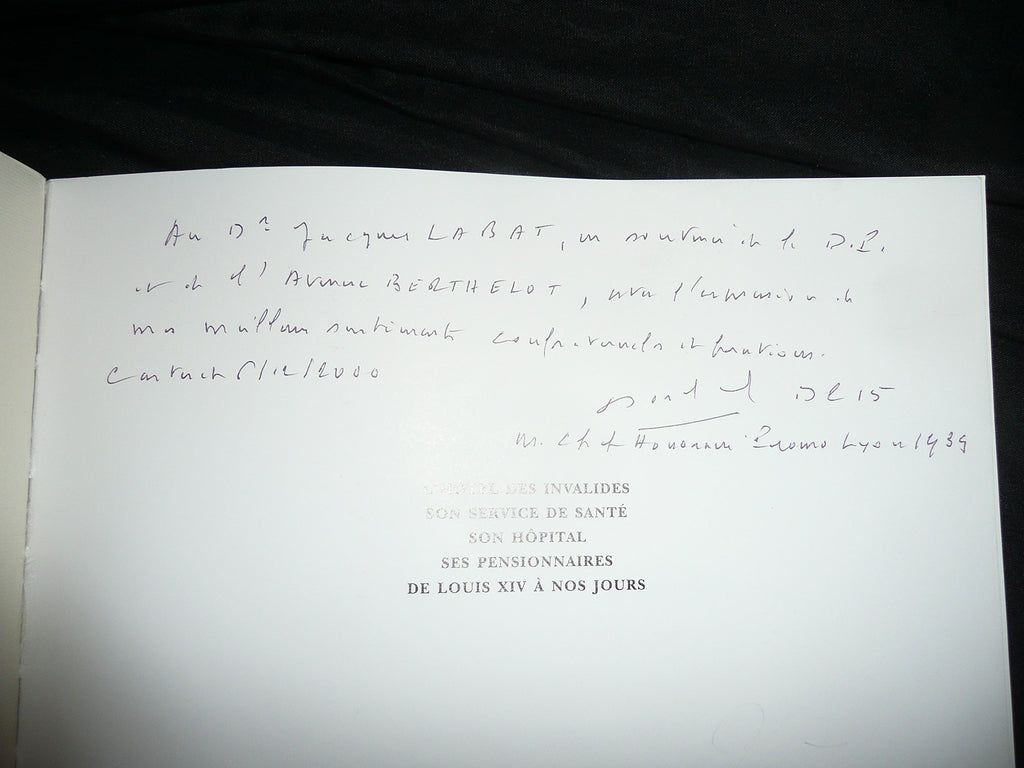 Au Dr Jacques LABAT, en souvenir de la D.P.
et de l'Avenue BERTHELOT, avec l'expression de
mes meilleurs sentiments confraternels et
2000
DE15
M. Chef Honoraire Promo Lyon 1939
DES INVALIDES
SON SERVICE DE SANTÉ
SON HÔPITAL
SES PENSIONNAIRES
DE LOUIS XIV À NOS JOURS